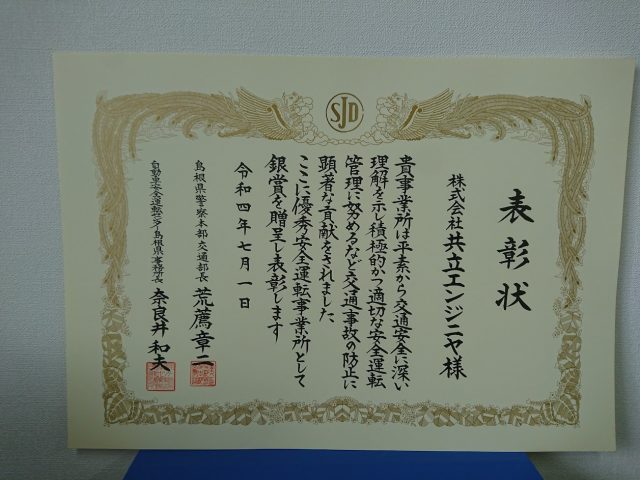 SJD
表彰状
株式会社共立エンジニヤ様
貴事業所は平素から交通安全に深い
理解を示し積極的かつ適切な安全運転
管理に努めるなど交通事故の防止に
顕著な貢献をされました
ここに優秀安全運転事業所として
銀賞を贈呈し表彰します
令和四年七月一日
島根県警察本部交通部長 荒薦章二
自動車安全運転センター島根県事務所長 奈良井和夫